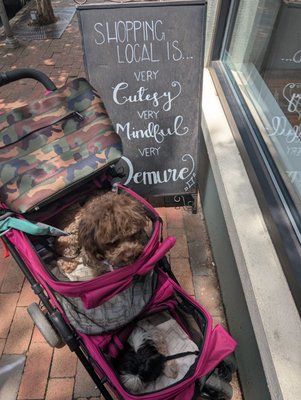 SHOPPING
LOCAL IS...
VERY
Cutesy
VERY
Mindful
VERY
Demure